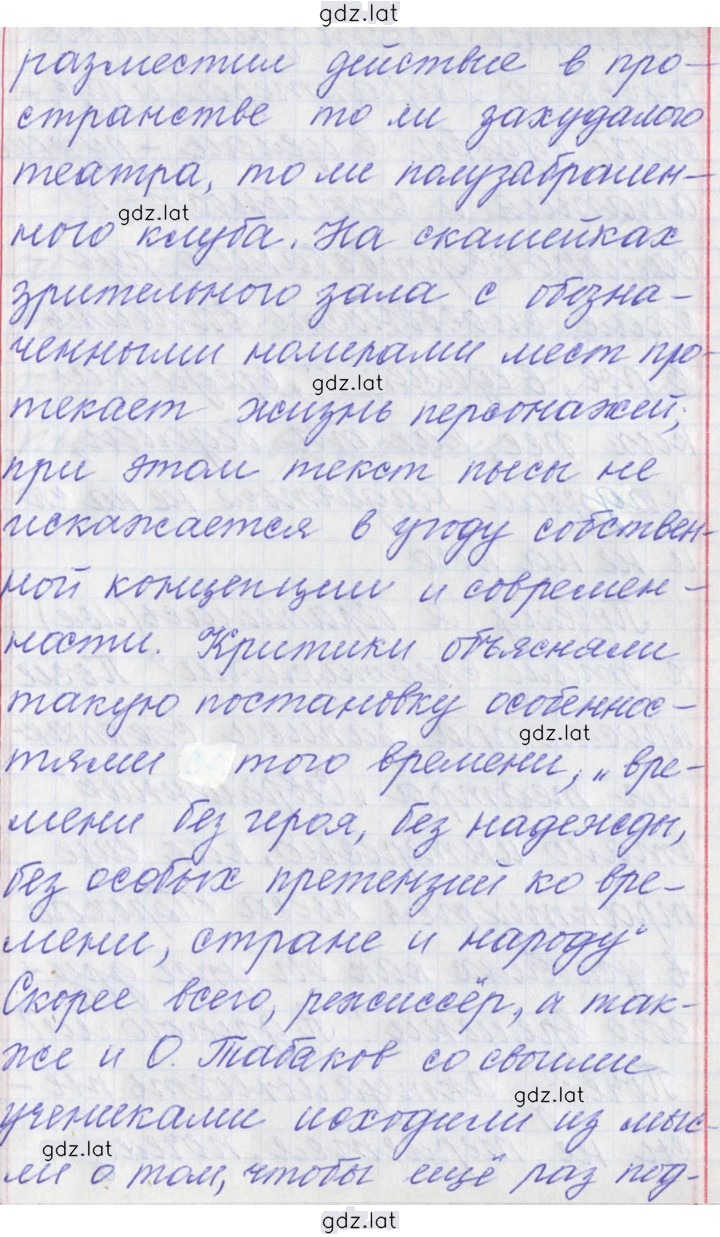 gdz.lat
разместил действие в про-
странстве то ли захудалого
театра, то ли полузаброшен-
gdz.lat
ного клуба. На скамейках
зрительного зала с обозна-
ченными номерами мест про-
gdz.lat
текает жизнь персонажей;
при этом текст пьесы не
искажается в угоду собствен-
ной концепции и современ-
ности. Критики объясняли
такую постановку особеннос-
gdz.lat
тями того времени, „вре-
мени без героя, без надежды,
без особых претензий ко вре-
мени, стране и народу“
Скорее всего, режиссёр, а так-
же и О. Табаков со своими
gdz.lat
учениками исходили из мыс-
gdz.lat
ли о том, чтобы ещё раз под-
gdz.lat